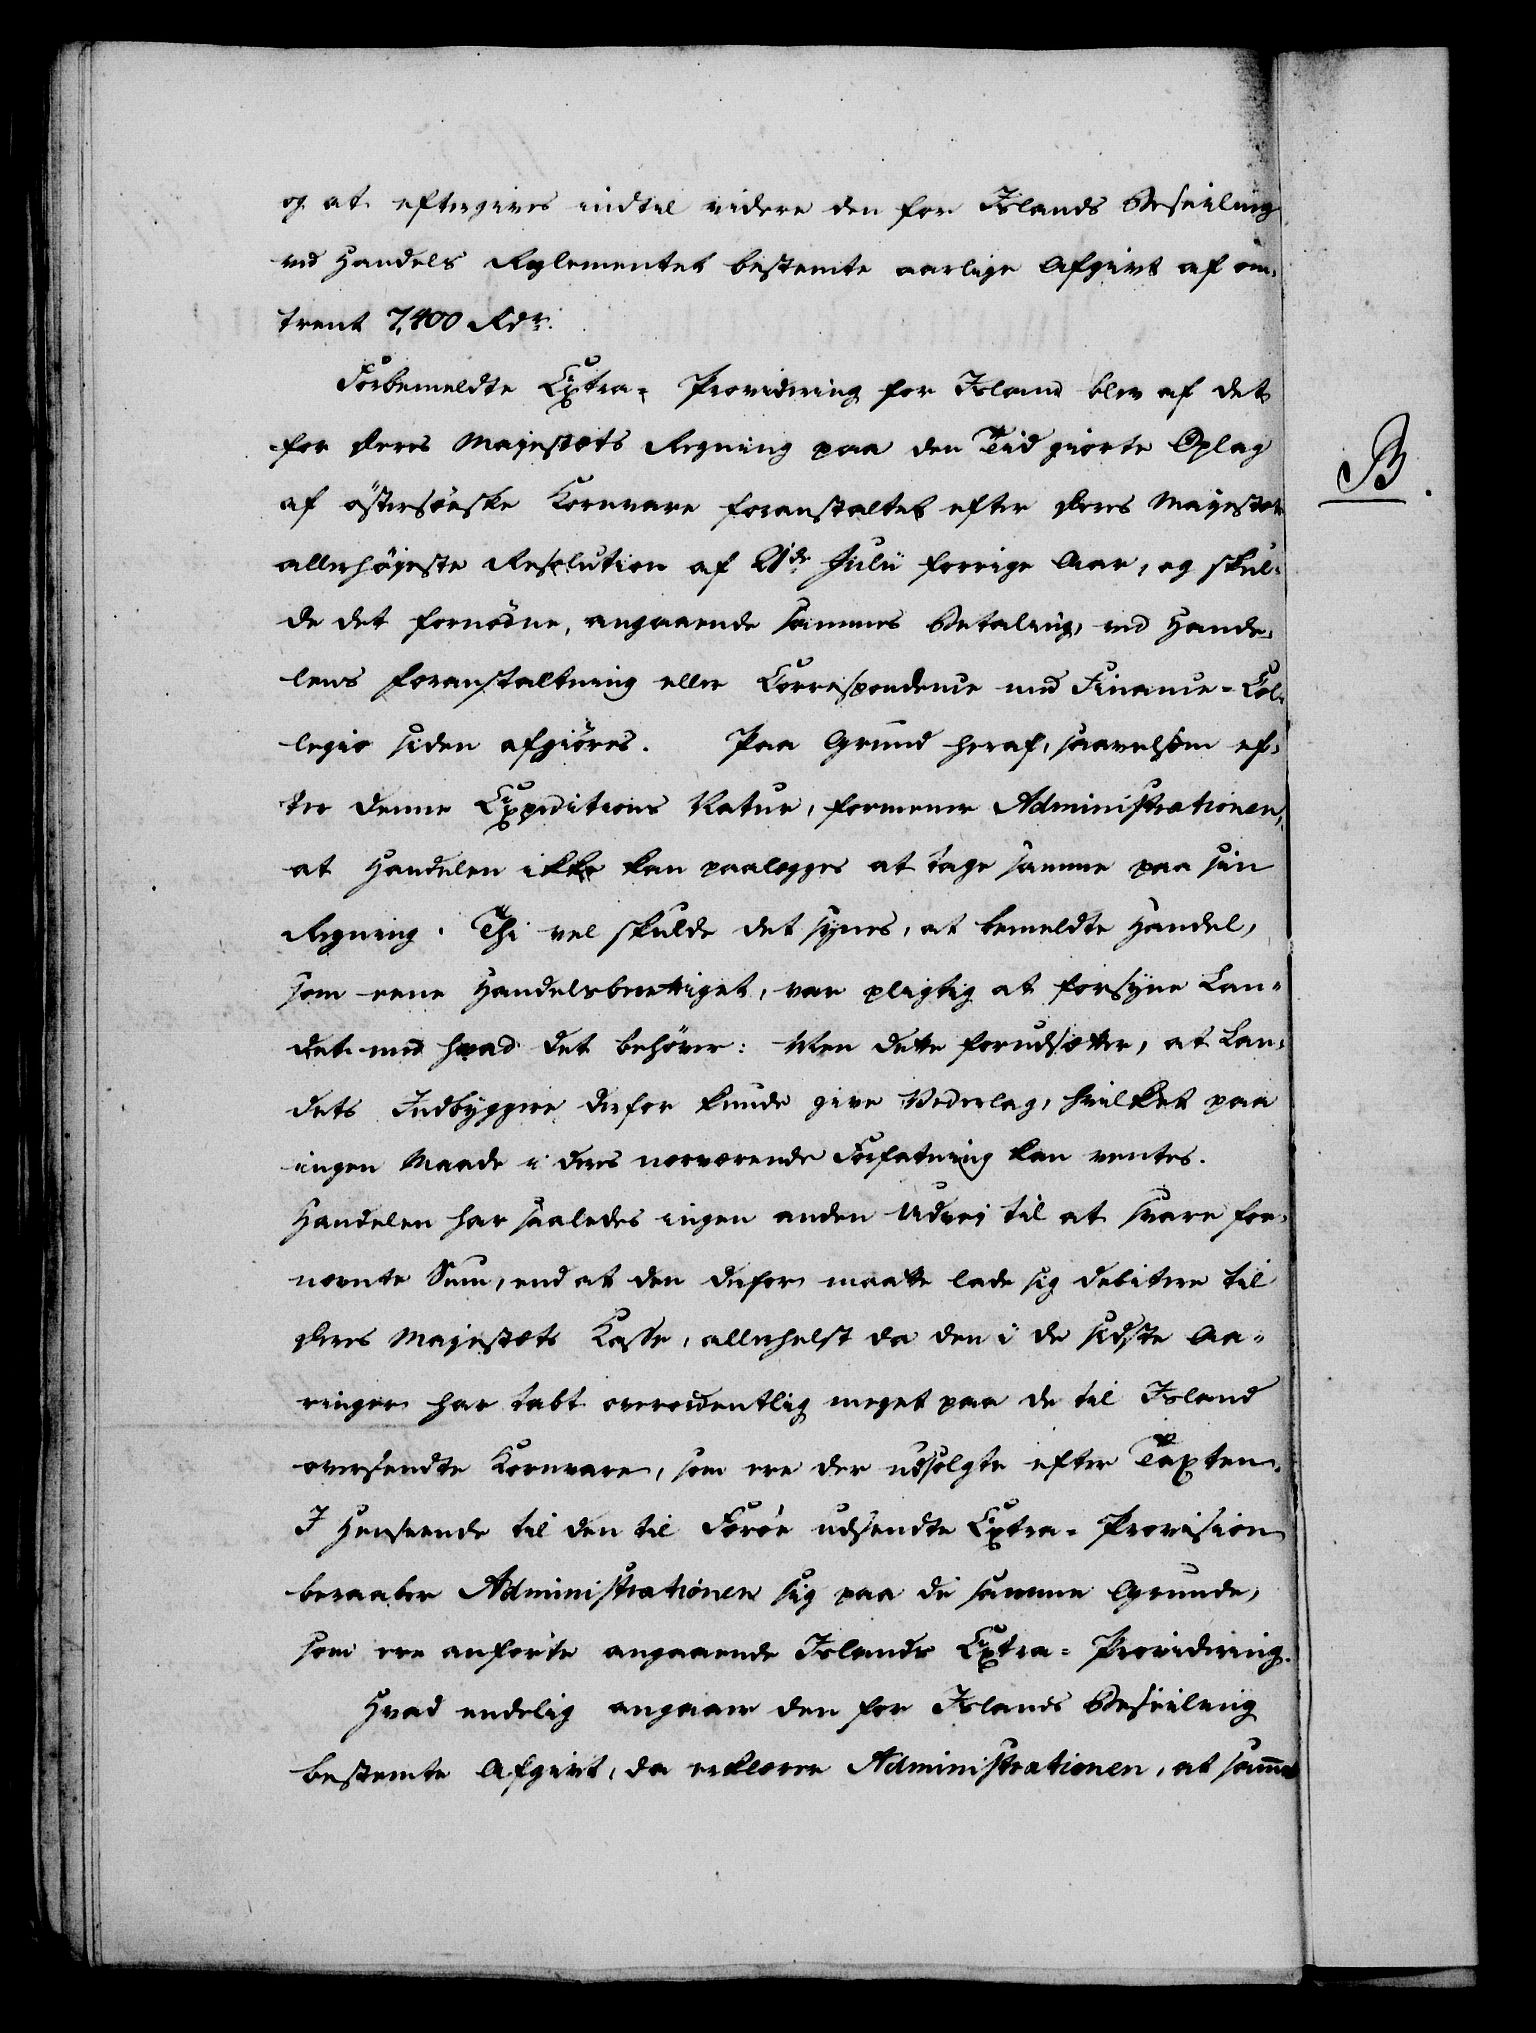 og at eftergives indtil videre den for Islands Beseiling
ved Handels Reglementet bestemte aarlige Afgivt af om-
trent 7,400 Rdr.
Forbemeldte Extra- Providering for Island blev af det
for Deres Majestæts Regning paa den Tiid giorte Oplag
af östersöeske Kornvare foranstaltet efter Deres Majestæts
allerhöjeste Resolution af 21de Julii forrige Aar, og skul-
de det fornödne, angaaende sammes Betaling, ved Hande-
lens Foranstaltning eller Correspondence med Finance-Col-
legio siden afgiöres. Paa Grund heraf, saavelsom ef-
ter denne Expeditions Natur, formener Administrationen,
at Handelen ikke kan paalegges at tage samme paa sin
Regning. Thi vel skulde det synes, at bemeldte Handel,
som eene Handelsberettiget, var pligtig at forsyne Lan-
det med hvad det behöver: Men dette forudsætter, at Lan-
dets Indbyggere derfor kunde give Vederlag, hvilket paa
ingen Maade i deres nærværende Forfatning kan ventes.
Handelen har saaledes ingen anden Udvej til at svare for-
nævnte Sum, end at den derfor maatte lade sig debitere til
Deres Majestæts Kasse, allerhelst da den i de sidste Aa-
ringer har tabt overordentlig meget paa de til Island
oversendte Kornvare, som ere der udsolgte efter Taxten.
I Henseende til den til Færöe udsendte Extra- Provision
beraaber Administrationen sig paa de samme Grunde,
som ere anförte angaaende Islands Extra- Providering.
Hvad endelig angaaer den for Islands Beseiling
bestemte Afgivt, da erklærer Administrationen, at samme
B.